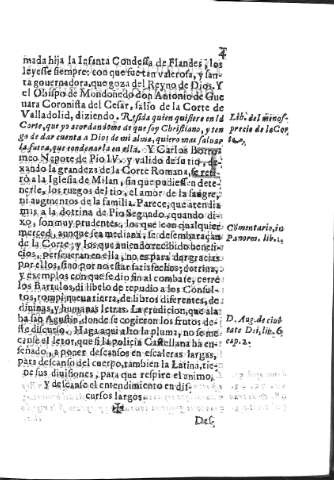 4
mada hija la Infanta Condessa de Flandes; los
leyesse siempre; con que fue tan valerosa, y san-
ta governadora, que goza del Reyno de Dios. Y
el Obispo de Mondoñedo don Antonio de Gue
uara Coronista del Cesar, salio de la Corte de
Valladolid, diziendo. Resida quien quisiere en la
Corte, que yo acordandome de que soy Christiano, y ten
go de dar cuenta a Dios de mi alma, quiero mas saluar
la fuera, que condenarla en ella. Y Carlos Borro-
meo Nepote de Pio IV. y valido de su tio, de-
xando la grandeza de la Corte Romana, se reti-
rò a la Iglesia de Milan, sin que pudiessen dete-
nerle, los ruegos del tio, el amor de la sangre,
ni augmentos de la familia. Parece, que atendia
mas a la dotrina de Pio Segundo, quando di-
xo, son muy prudentes, los que con qualquier
merced, aunque sea mediana, se desembarazan
de la Corte; y los que auiendo recibido benefi-
cios, perseueran en ella, no es para dar gracias
por ellos, sino por no estar satisfechos; dotrina,
y exemplos con que se dio fin al combate, cerrè
los Bartulos, di libelo de repudio a los Consul-
tos, rompi nueua tierra, de libros diferentes, de
diuinas, y humanas letras. La erudicion, que ala
ba san Agustin, donde se cogieron los frutos de-
ste discurso. Haga aqui alto la pluma, no se me
canse el letor, que si la policia Castellana ha en-
señado, a poner descansos en escaleras largas,
para descanso del cuerpo, tambien la Latina, tie-
ne sus diuisiones, para que respire el animo,
y descanse el entendimiento en dis-
cursos largos.
Des-
Lib. del menos-
precio de la Cor
te.
Comentario, in
Panorm. lib.
D. Aug. de ciui
tate Dei, lib. 6
cap. 2.